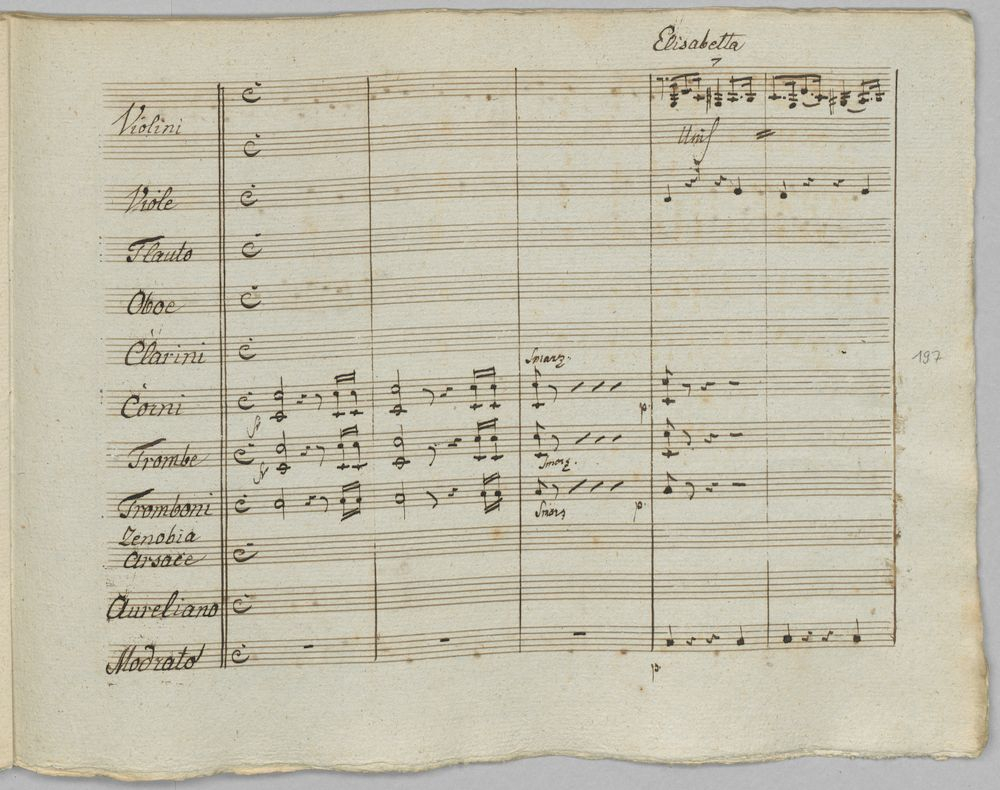 Elisabetta
Violini
Unis
Viole
Flauto
Oboe
Clarini
Smorz.
197
Corni
p
Trombe
Smorz.
Tromboni
Smorz
p
Zenobia
Arsace
Aureliano
Modrato
p